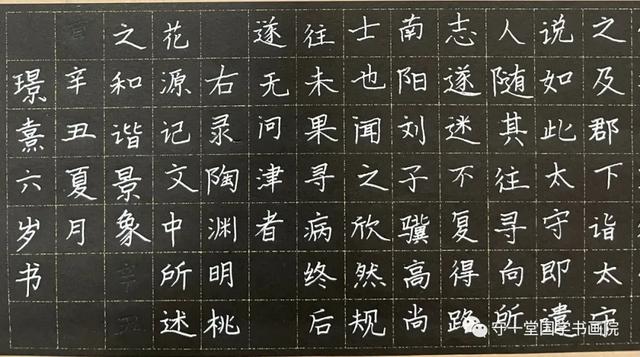 之及郡下诣太守
说如此太守即遣
人随其往寻向所
志遂迷不复得路
南阳刘子骥高尚
士也闻之欣然规
往未果寻病终后
遂无问津者
右录陶渊明桃
花源记文中所述
之和谐景象
辛丑夏月
璟熹六岁书
守一堂国学书画院